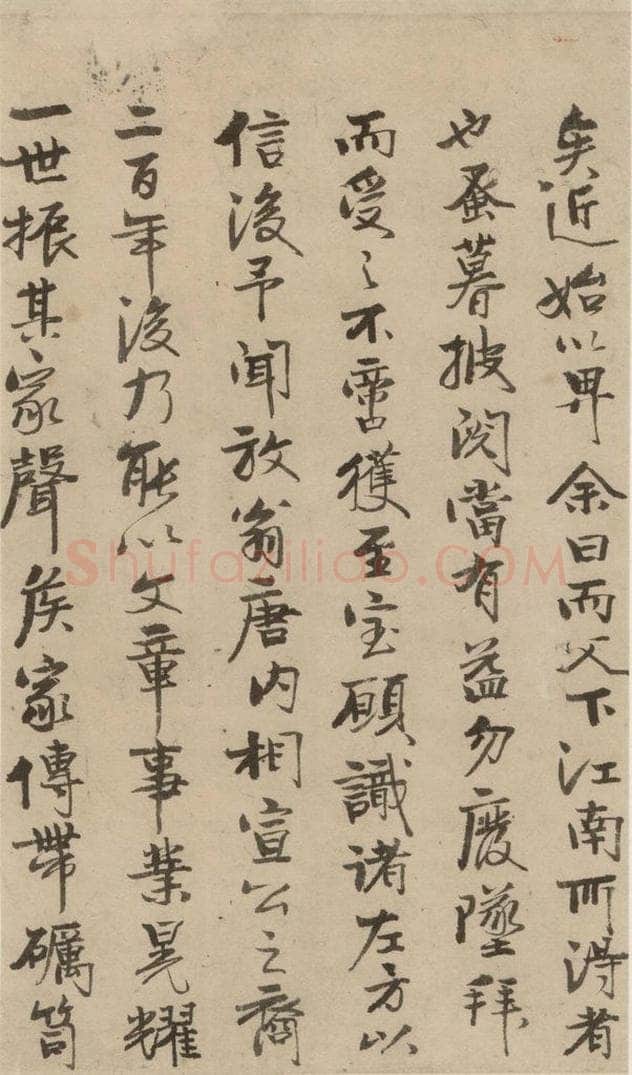 矣近始以畀余曰而父下江南所得者
也蚤暮披閱當有益勿廢墜拜
而受之不啻獲至宝願識诸左方以
信後予聞放翁唐内相宣公之裔
二百年後乃能以文章事業晃耀
一世振其家聲侯家傳帶礪笥
Shufaziliao.COM